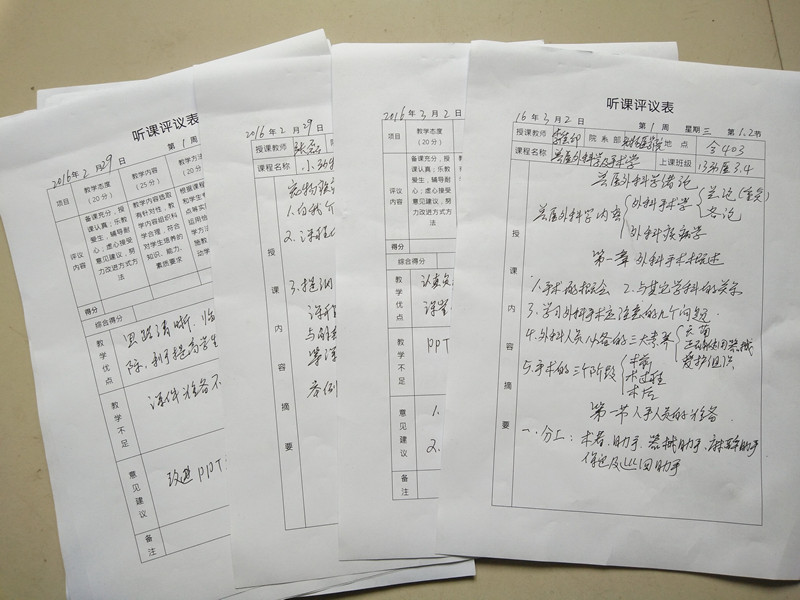 听课评议表
2016年 2月 29日 第1周
项目
教学态度
(20分)
教学内容
(25分)
教学方法
评议内容
备课充分,授
课认真;乐教
爱生,辅导耐
心;虚心接受
意见建议,努
力改进方式方
法
教学内容选取
有针对性,教
学内容组织科
学合理,符合
对学生培养的
知识、能力、
素质要求
得分
综合得分
教学优点
思路清晰、临
际,利于提高学生
教学不足
课件准备不
意见建议
改进PPT
备注
2016年 2月 29日
授课教师
课程名称
授课内容摘要
1.
2.
3.
举例
2016年 3月 2日
项目
教学态度
(20分)
评议内容
备课充分,授
课认真;乐教
爱生,辅导耐
心;虚心接受
意见建议,努
力改进方式方
法
得分
综合得分
教学优点
认真负
教学不足
PPT
意见建议
1.
2.
备注
听课评议表
16年 3月 2日 第1周 星期三 第1.2节
授课教师 院系部 地点 合403
课程名称 兽医外科学及手术学 上课班级 13动医3.4
授课内容摘要
兽医外科学绪论
兽医外科学内容 外科手术学 总论(重点)
各论
外科疾病学
第一章 外科手术概述
1.手术的概念 2.与其它学科的关系
3.学习外科手术应注意的几个问题
4.外科人员必备的三大考察 无菌
正确使用器械
爱护组织
5.手术的三个阶段 术前
术过程
术后
第一节 人手人员的准备
一、分工:术者、助手、器械助手、麻醉助手
保定及巡回助手